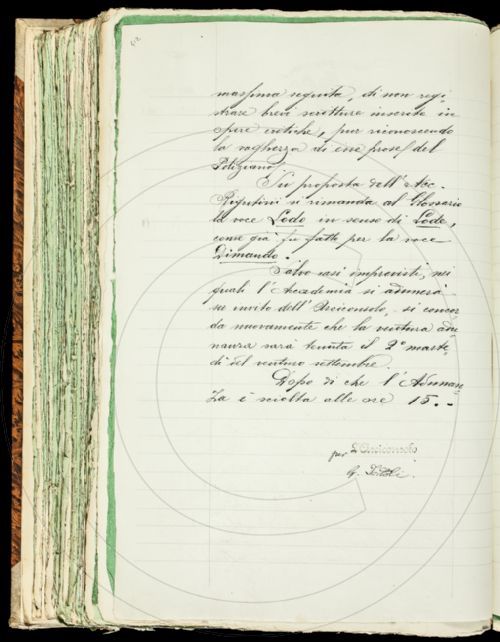 massima seguita, di non regi-
strare brevi scritture inserite in
opere critiche, pur riconoscendo
la vaghezza di esse prose del
Poliziano.
Su proposta dell'Acc.
Rigutini si rimanda al Glossario
la voce Lodo in senso di Lode,
come già fu fatto per la voce
Dimando.
Salvo casi imprevisti, nei
quali l'Accademia si adunerà
su invito dell'Arciconsolo, si concor
da nuovamente che la ventura adu-
nanza sarà tenuta il 2° marte-
dì del venturo settembre.
Dopo di che l'Adunan
za è sciolta alle ore 15. --
per L'Arciconsolo
G.